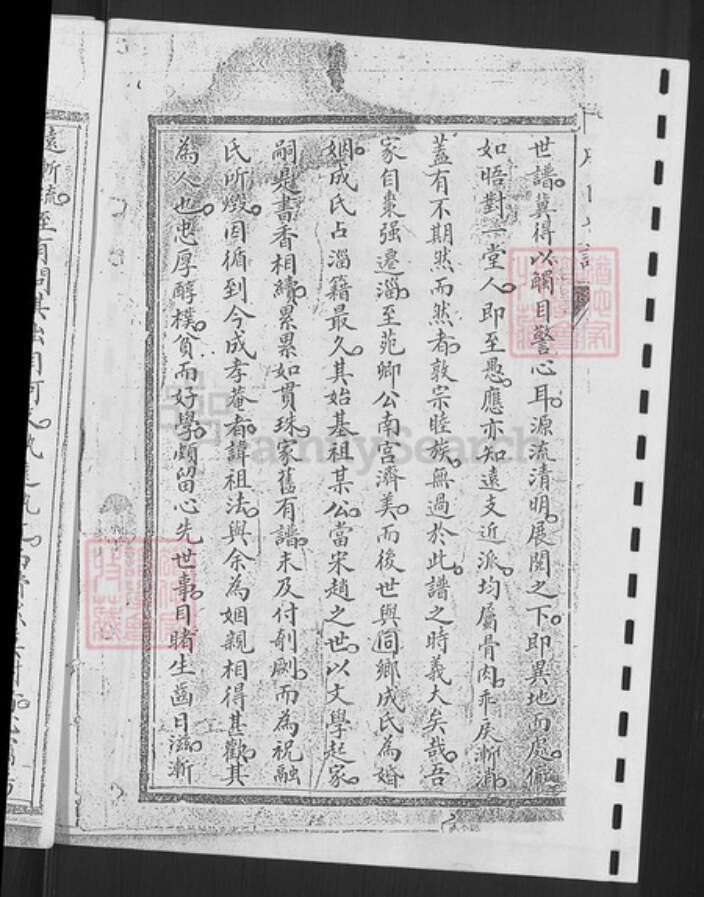 世譜冀得以觸目警心耳源流清明展閱之下即異地而處儼
如晤對一堂人即至愚應亦知遠支近派均屬骨肉乖戾漸消
蓋有不期然而然者敦宗睦族無過於此譜之時義大矣哉吾
家自棗强遷淄至苑卿公南宮濟美而後世與同鄉成氏為婚
姻成氏占淄籍最久其始基祖某公當宋趙之世以文學起家
嗣是書香相續累累如貫珠家舊有譜未及付剞劂而為祝融
氏所燬因循到今成孝菴者諱祖法與余為姻親相得甚歡其
為人也忠厚醇樸貧而好學頗留心先世事目睹生齒日滋漸
遠漸疏至有問其
FamilySearch